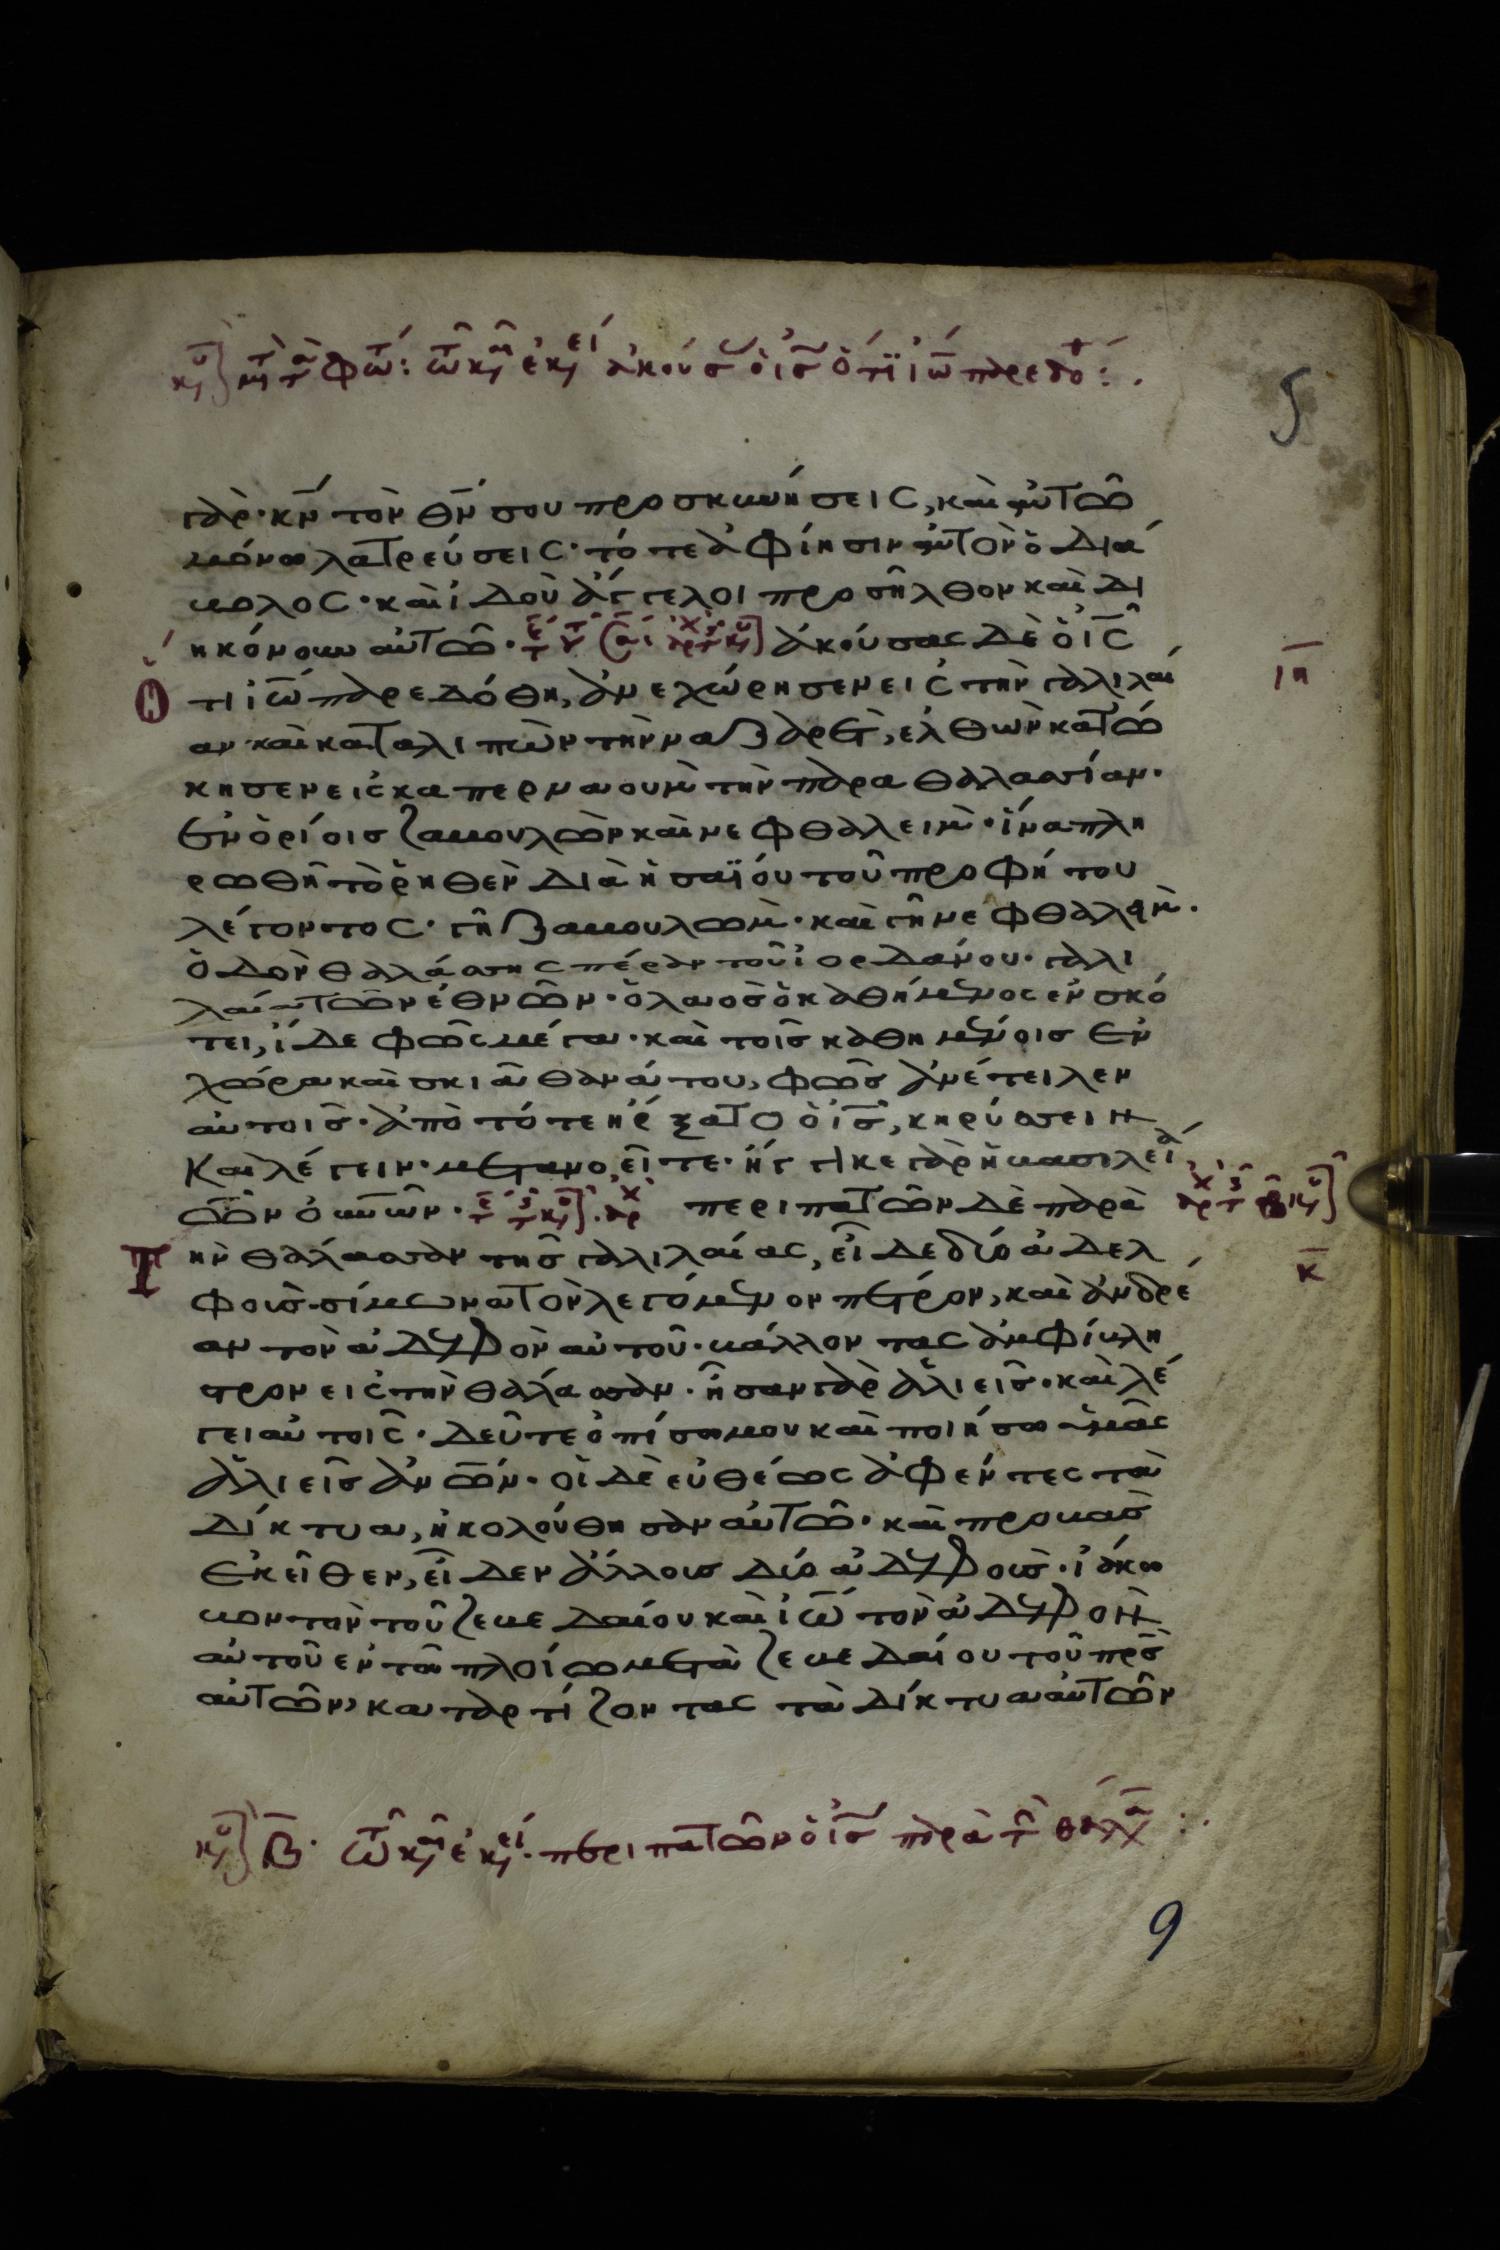 κυ] μτ τ φω: τω κη ἐκει ἀκούσ ὁ ισ ὅτι ϊω παρεδο:.
5
γάρ· κν τὸν θν σου προσκυνήσεις, καὶ αὐτῶ
μόνω λατρεύσεις· τότε ἀφίησιν αὐτὸν ὁ διά
βολος· καὶ ἰδοὺ ἄγγελοι προσῆλθον καὶ δι
ηκόνουν αὐτῶ· ἀκούσας δὲ ὁ ις
ιη
ὅ
τι ιω παρεδόθη, ἀνεχώρησεν εἰς τὴν γαλιλαί
αν καὶ καταλιπὼν τὴν ναζαρὲτ, ἐλθὼν κατώ
κησεν εἰς καπερναουμ τὴν παραθαλασσίαν·
ἐν ὁρίοις ζαβουλὼν καὶ νεφθαλειμ· ἵνα πλη
ρωθῆ τὸ ῥηθὲν διὰ ἠσαΐου τοῦ προφήτου
λέγοντος· γῆ ζαβουλὼν· καὶ γῆ νεφθαλειμ·
ὁδὸν θαλάσσης πέραν τοῦ ἰορδάνου· γαλι
λαία τῶν ἐθνῶν· ὁ λαὸς ὁ καθήμενος ἐν σκό
τει, ἴδε φῶς μέγα· καὶ τοῖς καθημένοις ἐν
χώρα καὶ σκιᾶ θανάτου, φῶς ἀνέτειλεν
αὐτοῖς· ἀπὸ τότε ἤρξατο ὁ ις, κηρύσσειν
καὶ λέγειν· μετανοεῖτε· ἤγγικε γὰρ ἡ βασιλεία
τῶν οὐνων· περιπατῶν δὲ παρὰ
κ
τ
ὴν θάλασσαν τῆς γαλιλαίας, εἶδε δύο ἀδελ
φοὺς· σίμωνα τὸν λεγόμενον πέτρον, καὶ ἀνδρέ
αν τὸν ἀδελφὸν αὐτοῦ· βάλλοντας ἀμφίβλη
στρον εἰς τὴν θάλασσαν· ἦσαν γὰρ ἁλιεῖς· καὶ λέ
γει αὐτοῖς· δεῦτε ὀπίσω μου καὶ ποιήσω ὑμᾶς
ἁλιεῖς ἀνων· οἱ δὲ εὐθέως ἀφέντες τὰ
δίκτυα, ἠκολούθησαν αὐτῶ· καὶ προβὰς
ἐκεῖθεν, εἶδεν ἄλλους δύο ἀδελφοὺς· ἰάκω
βον τὸν τοῦ ζεβεδαίου καὶ ιω τὸν ἀδελφὸν
αὐτοῦ ἐν τῶ πλοίω μετὰ ζεβεδαίου τοῦ πρς
αὐτῶν, καταρτίζοντας τὰ δίκτυα αὐτῶν
κυ] β· τω κη ἐκει· περιπατῶν ὁ ις παρὰ τ θαλα:.
9